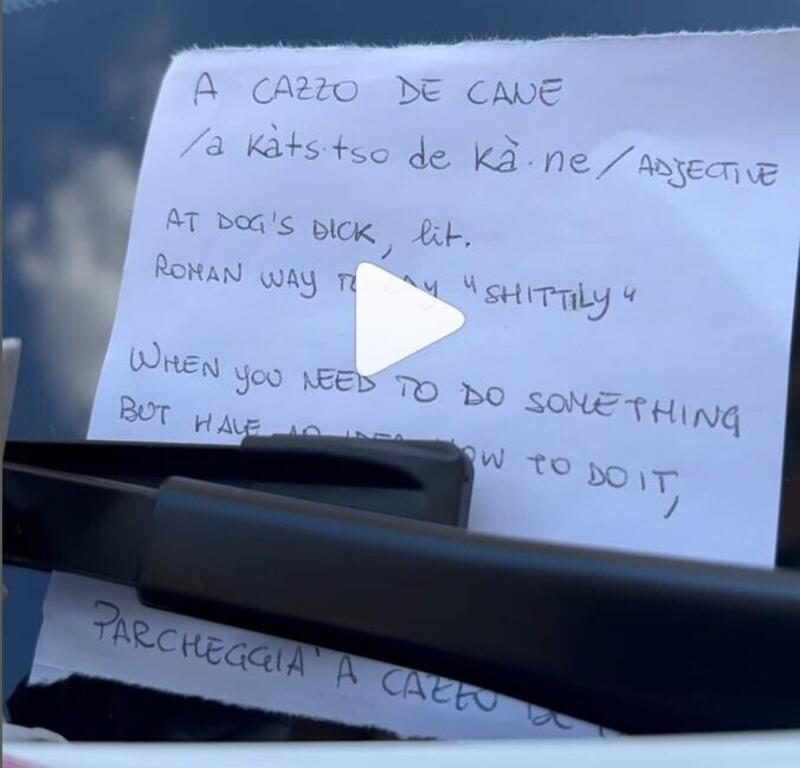 A CAZZO DE CANE
/a kàts·tso de kà·ne/ ADJECTIVE
AT DOG'S DICK, lit.
ROMAN WAY TO SAY "SHITTILY"
WHEN YOU NEED TO DO SOMETHING
BUT HAVE NO IDEA HOW TO DO IT,
PARCHEGGIA' A CAZZO DE